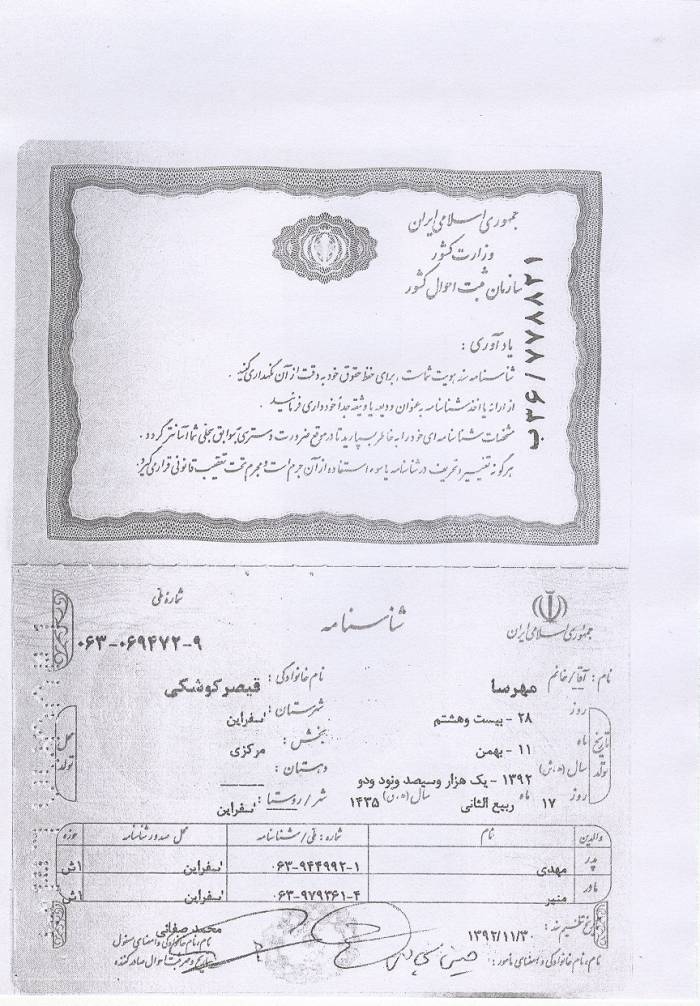 جمهوری اسلامی ایران
وزارت کشور
سازمان ثبت احوال کشور
ب۳۶/۷۷۸۸۲۱
یادآوری :
شناسنامه سند هویت شماست ، برای حفظ حقوق خود به دقت از آن نگهداری کنید .
از ارائه یا اخذ شناسنامه به عنوان ودیعه یا وثیقه جداً خودداری فرمائید .
مشخصات شناسنامه ای خود را به خاطر بسپارید تا در موقع ضرورت دسترسی به سوابق سجلی شما آسانتر گردد .
هرگونه تغییر و تحریف در شناسنامه یا سوء استفاده از آن جرم است و مجرم تحت تعقیب قانونی قرار می گیرد.
جمهوری اسلامی ایران
شناسنامه
شمارۀ ملی
۰۶۳-۰۶۹۴۷۲-۹
نام : آقا/خانم مهرسا
نام خانوادگی : قیصرکوشکی
تاریخ تولد
روز ۲۸ - بیست وهشتم
ماه ۱۱ - بهمن
سال (ه.ش) ۱۳۹۲ - یک هزار وسیصد ونود ودو
روز ۱۷ ماه ربیع الثانی سال (ه.ق) ۱۴۳۵
محل تولد
شهرستان : اسفراین
بخش : مرکزی
دهستان :
شهر/روستا : اسفراین
والدین نام شماره : ملی/شناسنامه محل صدور شناسنامه حوزه
پدر مهدی ۰۶۳-۹۴۴۹۹۲-۱ اسفراین ۱ش
مادر منیر ۰۶۳-۹۷۹۳۶۱-۴ اسفراین ۱ش
تاریخ تنظیم سند : ۱۳۹۲/۱۱/۳۰
نام، نام خانوادگی و امضای مأمور :
محمد صفائی
نام، نام خانوادگی و امضای مسئول